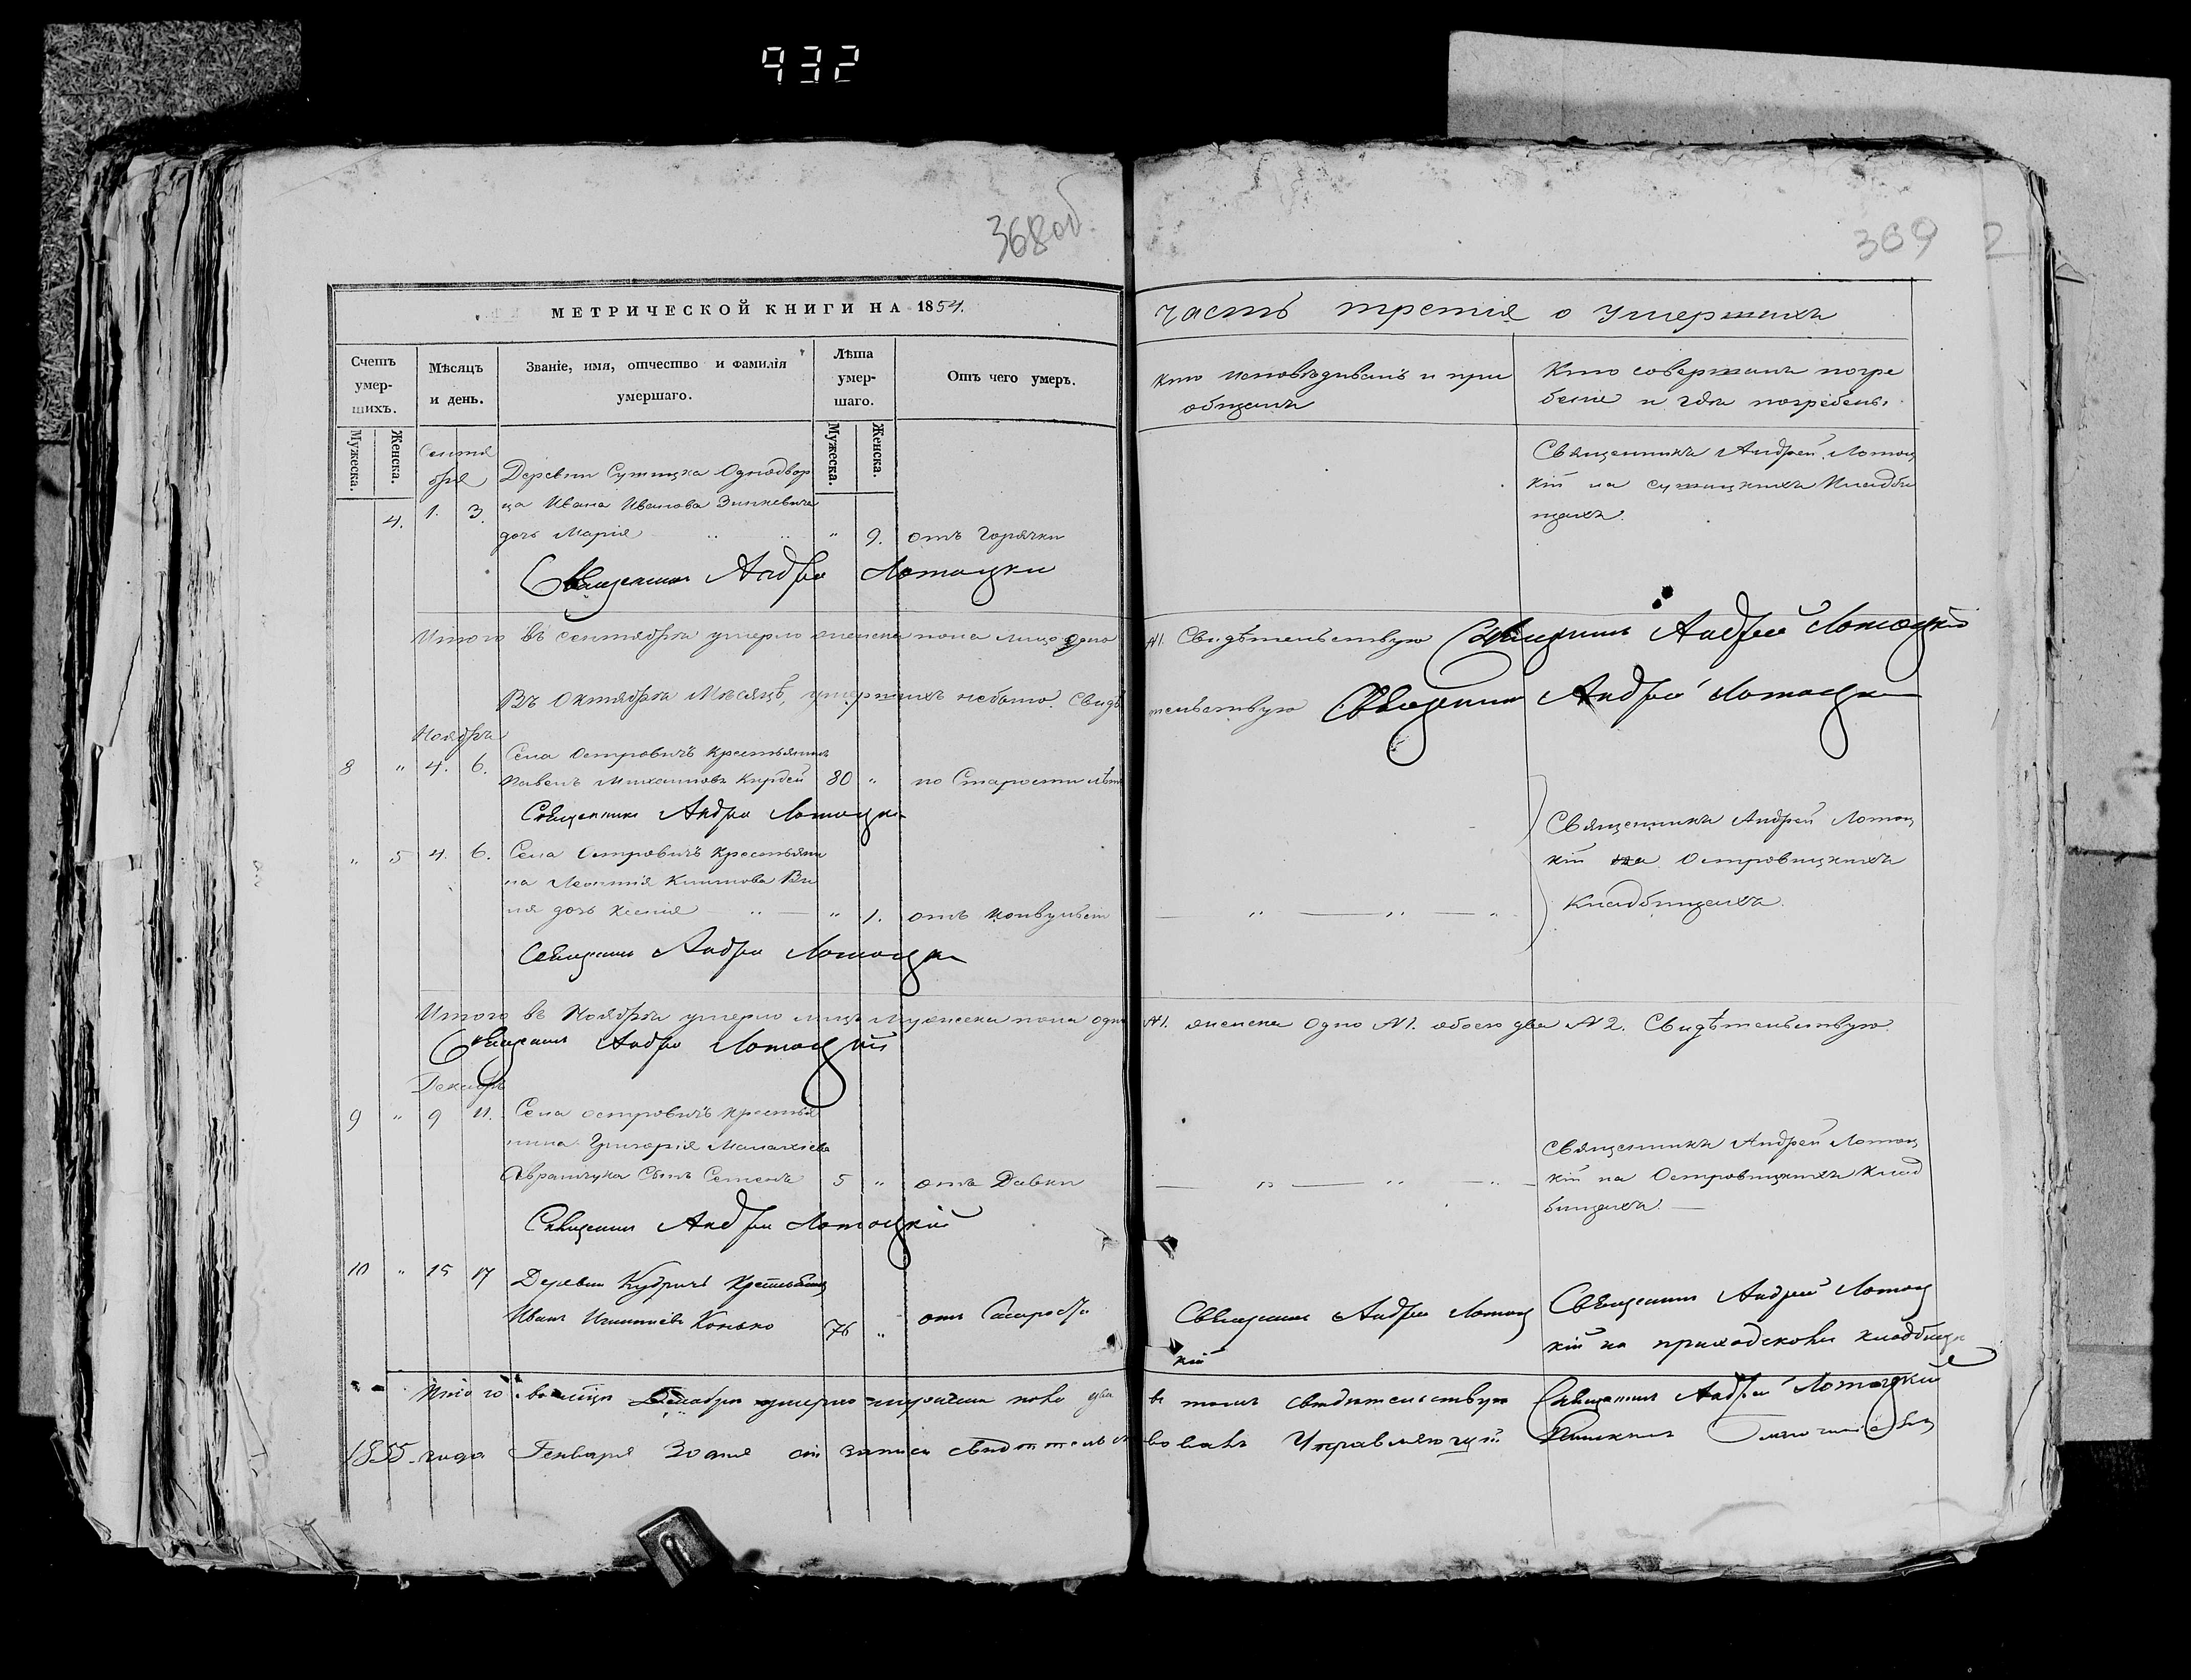 932
368 об.
369
МЕТРИЧЕСКОЙ КНИГИ НА 1854.
часть третія о умершихъ
Счетъ умер-
шихъ.
Мѣсяцъ
и день.
Званіе, имя, отчество и фамилія
умершаго.
Лѣта
умер-
шаго.
Отъ чего умеръ.
кто исповѣдывалъ и при
общалъ
Кто совершалъ погре
беніе и гдѣ погребены.
Мужеска.
Женска.
Мужеска.
Женска.
Сентя
бря
4. 1. 3.
Деревни Сушицка Однодвор
ца Ивана Иванова Зинкевича
дочь Марія " 9. отъ горячки
Священникъ Андрей Лотоц
кій на сушицкихъ Кладби
щахъ.
Священникъ Андрей Лотоцкій
Итого въ сентябрѣ умерло женска пола лицо одно
№1. Свидѣтельствую Священникъ Андрей Лотоцкій
Въ Октябрѣ Мѣсяцѣ, умершихъ небыло. Свидѣ
тельствую Священникъ Андрей Лотоцкій
Ноябрь
8 " 4. 6. Села Островичъ Крестьянинъ
Павелъ Михаиловъ Кирдей 80 " по Старости лѣтъ
Священникъ Андрей Лотоцкій
" 5 4. 6. Села Островичъ Крестьяни
на Леонтія Климова
дочь Ксенія " 1. отъ конвульсіи
Священникъ Андрей Лотоц
кій на Островицкихъ
Кладбищахъ.
Священникъ Андрей Лотоцкій
Итого въ Ноябрѣ умерло лицъ мужеска пола одно
№1. женска одно №1. обоего два №2. Свидѣтельствую.
Священникъ Андрей Лотоцкій
Декабрь
9 " 9 11. Села Островичъ Крестья
нина Григорія Малахіева
Сынъ Семенъ 5 " отъ Давки
Священникъ Андрей Лотоц
кій на Островицкихъ Клад
бищахъ.
Священникъ Андрей Лотоцкій
10 " 15 17 Деревни Кудричъ
Иванъ Конько 76 " отъ Старости
Священникъ Андрей Лотоц
кій
Священникъ Андрей Лотоц
кій на приходскомъ кладбищѣ
Итого въ мѣсяцѣ Декабрѣ умерло мужеска полу два
въ томъ свидѣтельствую Священникъ Андрей Лотоцкій
1855 года Генваря 30 дня сіи записи свидѣтельст
вовалъ Управляющій